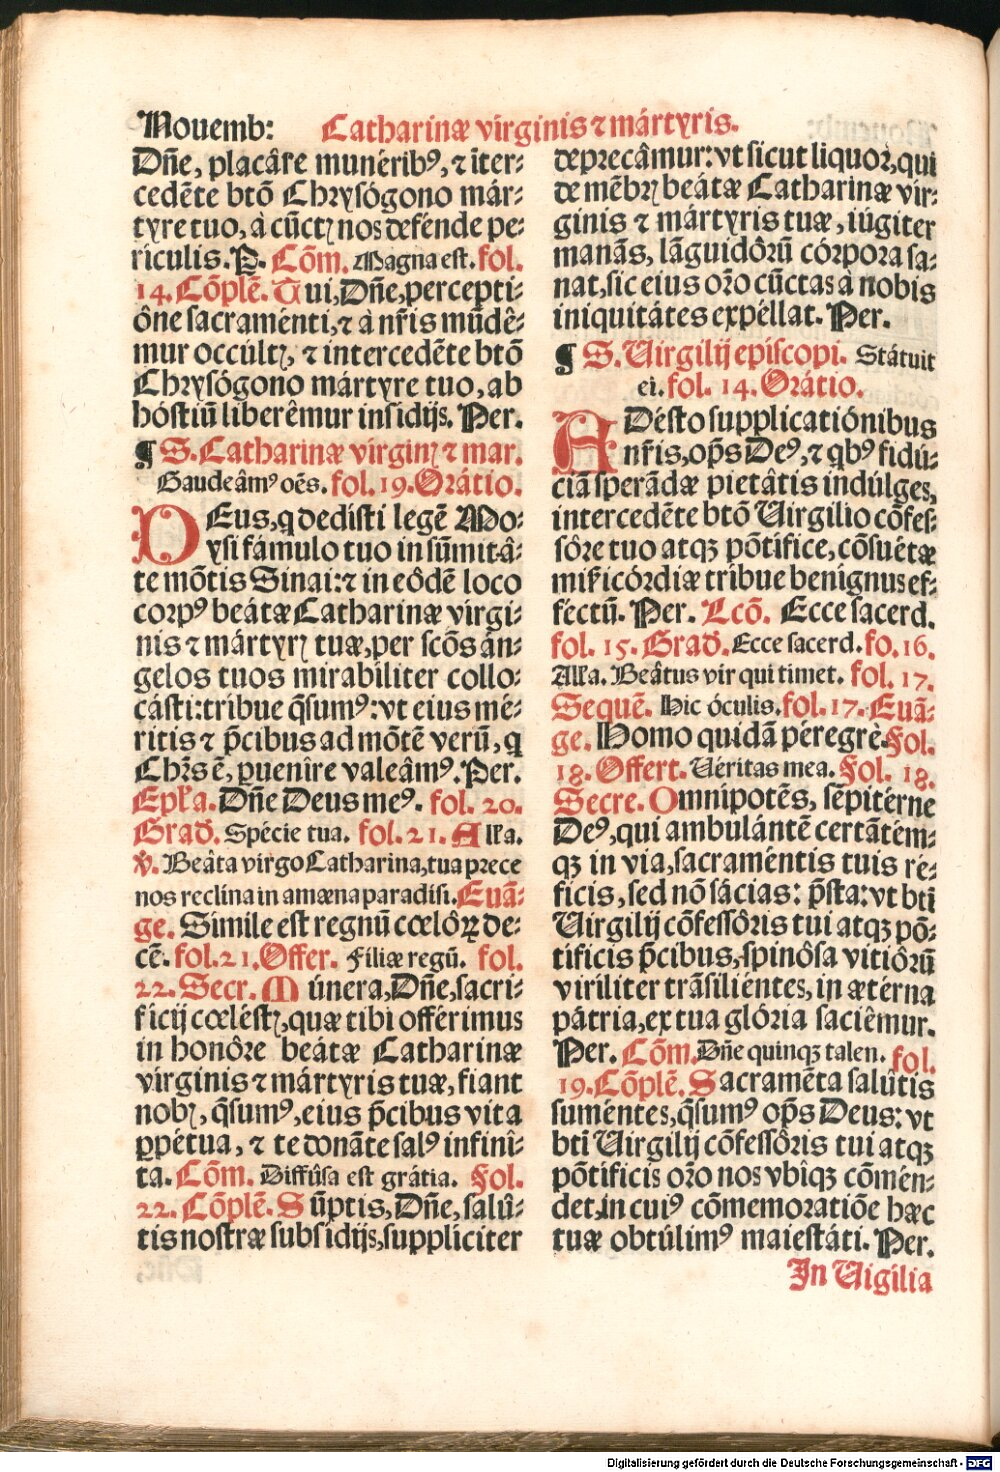 Nouemb: Catharinæ virginis ⁊ mártyris.
Dñe, placâre munérib⁹, ⁊ īter-
cedēte btō Chrysógono már-
tyre tuo, à cūctꝭ nos defénde pe-
riculis. P. Cōm. Magna est. fol.
14. Cōplē. Qui, Dñe, percepti-
ône sacraménti, ⁊ à nr̄is mūdê-
mur occúltꝭ, ⁊ intercedēte btō
Chrysógono mártyre tuo, ab
hóstiū liberêmur insidijs. Per.
¶ S. Catharinæ virginꝭ ⁊ mar.
Gaudeâm⁹ oēs. fol. 19. Orátio.
DEus, q dedisti legē Mo-
ysi fámulo tuo in sūmitâ-
te mōtis Sinai: ⁊ in eôdē loco
corp⁹ beátæ Catharinæ virgi-
nis ⁊ mártyrꝭ tuæ, per scōs án-
gelos tuos mirabíliter collo-
cásti: tribue q̄sum⁹: vt eius mé-
ritis ⁊ p̄cibus ad mōtē verū, q
Chr̄s ē, puenîre valeâm⁹. Per.
Epľa. Dñe Deus me⁹. fol. 20.
Grad. Spécie tua. fol. 21. Alľa.
℣. Beâta virgo Catharina, tua prece
nos reclina in amœna paradisi. Euā-
ge. Simile est regnū cœlôꝝ de-
cē. fol. 21. Offer. Filiæ regū. fol.
22. Secr. Múnera, Dñe, sacri-
ficij cœléstꝭ, quæ tibi offérimus
in honôre beátæ Catharinæ
virginis ⁊ mártyris tuæ, fiant
nobꝭ, q̄sum⁹, eius p̄cibus vita
ꝑpétua, ⁊ te donāte sal⁹ infinî-
ta. Cōm. Diffûsa est grátia. Fol.
22. Cōplē. Sūptis, Dñe, salû-
tis nostræ subsidijs, suppliciter
deprecâmur: vt sicut liquor, qui
de mēbrꝭ beátæ Catharinæ vir-
ginis ⁊ mártyris tuæ, iúgiter
manās, lāguidôrū córpora sa-
nat, sic eius oŕo cūctas à nobis
iniquitátes expéllat. Per.
¶ S. Virgilij episcopi. Státuit
ei. fol. 14. Orátio.
ADésto supplicatiónibus
nr̄is, op̄s De⁹, ⁊ qb⁹ fidú-
ciā sperādæ pietâtis indúlges,
intercedēte btō Virgilio cōfes-
sôre tuo atqꝫ pōtifice, cōsuétæ
mis̄icórdiæ tribue benignus ef-
féctū. Per. Lcō. Ecce sacerd.
fol. 15. Grad. Ecce sacerd. fo. 16.
Alľa. Beâtus vir qui timet. fol. 17.
Sequē. Hic óculis. fol. 17. Euā-
ge. Homo quidā péregrè. Fol.
18. Offert. Véritas mea. Fol. 18.
Secre. Omnipotēs, sēpitérne
De⁹, qui ambulántē certātém-
qꝫ in via, sacraméntis tuis ré-
ficis, sed nō sácias: p̄sta: vt btī
Virgilij cōfessôris tui atqꝫ pō-
tíficis p̄cibus, spinôsa vitiôrū
viríliter trāsiliéntes, in ætérna
pātria, ex tua glória saciêmur.
Per. Cōm. Dñe quinqꝫ talen. fol.
19. Cōplē. Sacramēta salûtis
suméntes, q̄sum⁹ op̄s Deus: vt
btī Virgilij cōfessôris tui atqꝫ
pōtíficis oŕo nos vbîqꝫ cōmén-
det, in cui⁹ cōmemoratiōe hæc
tuæ obtúlim⁹ maiestáti. Per.
In Vigilia
Digitalisierung gefördert durch die Deutsche Forschungsgemeinschaft - DFG